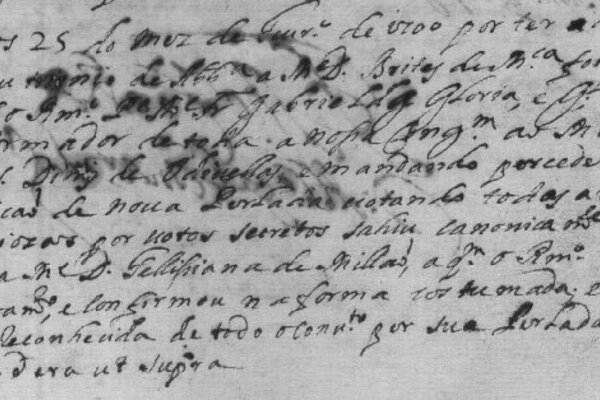 25 do mez de Feur.º de 1700 por ter
de Abb.ª a M.e D. Brites de
o Rm.º P. M.e Fr. Gabriel da Gloria, e
ormador de toda a nossa Cong.m ao M
Diniz de Odivellas, e mandando procede
de nova Perlada, votando todas a
por votos secretos sahiu canonica
a M.e D. Fellisiana de Millaõ, a q.m o Rm.º
e confirmou na forma costumada, e
Reconhecida de todo o conv.to por sua Perlada
Dera ut supra